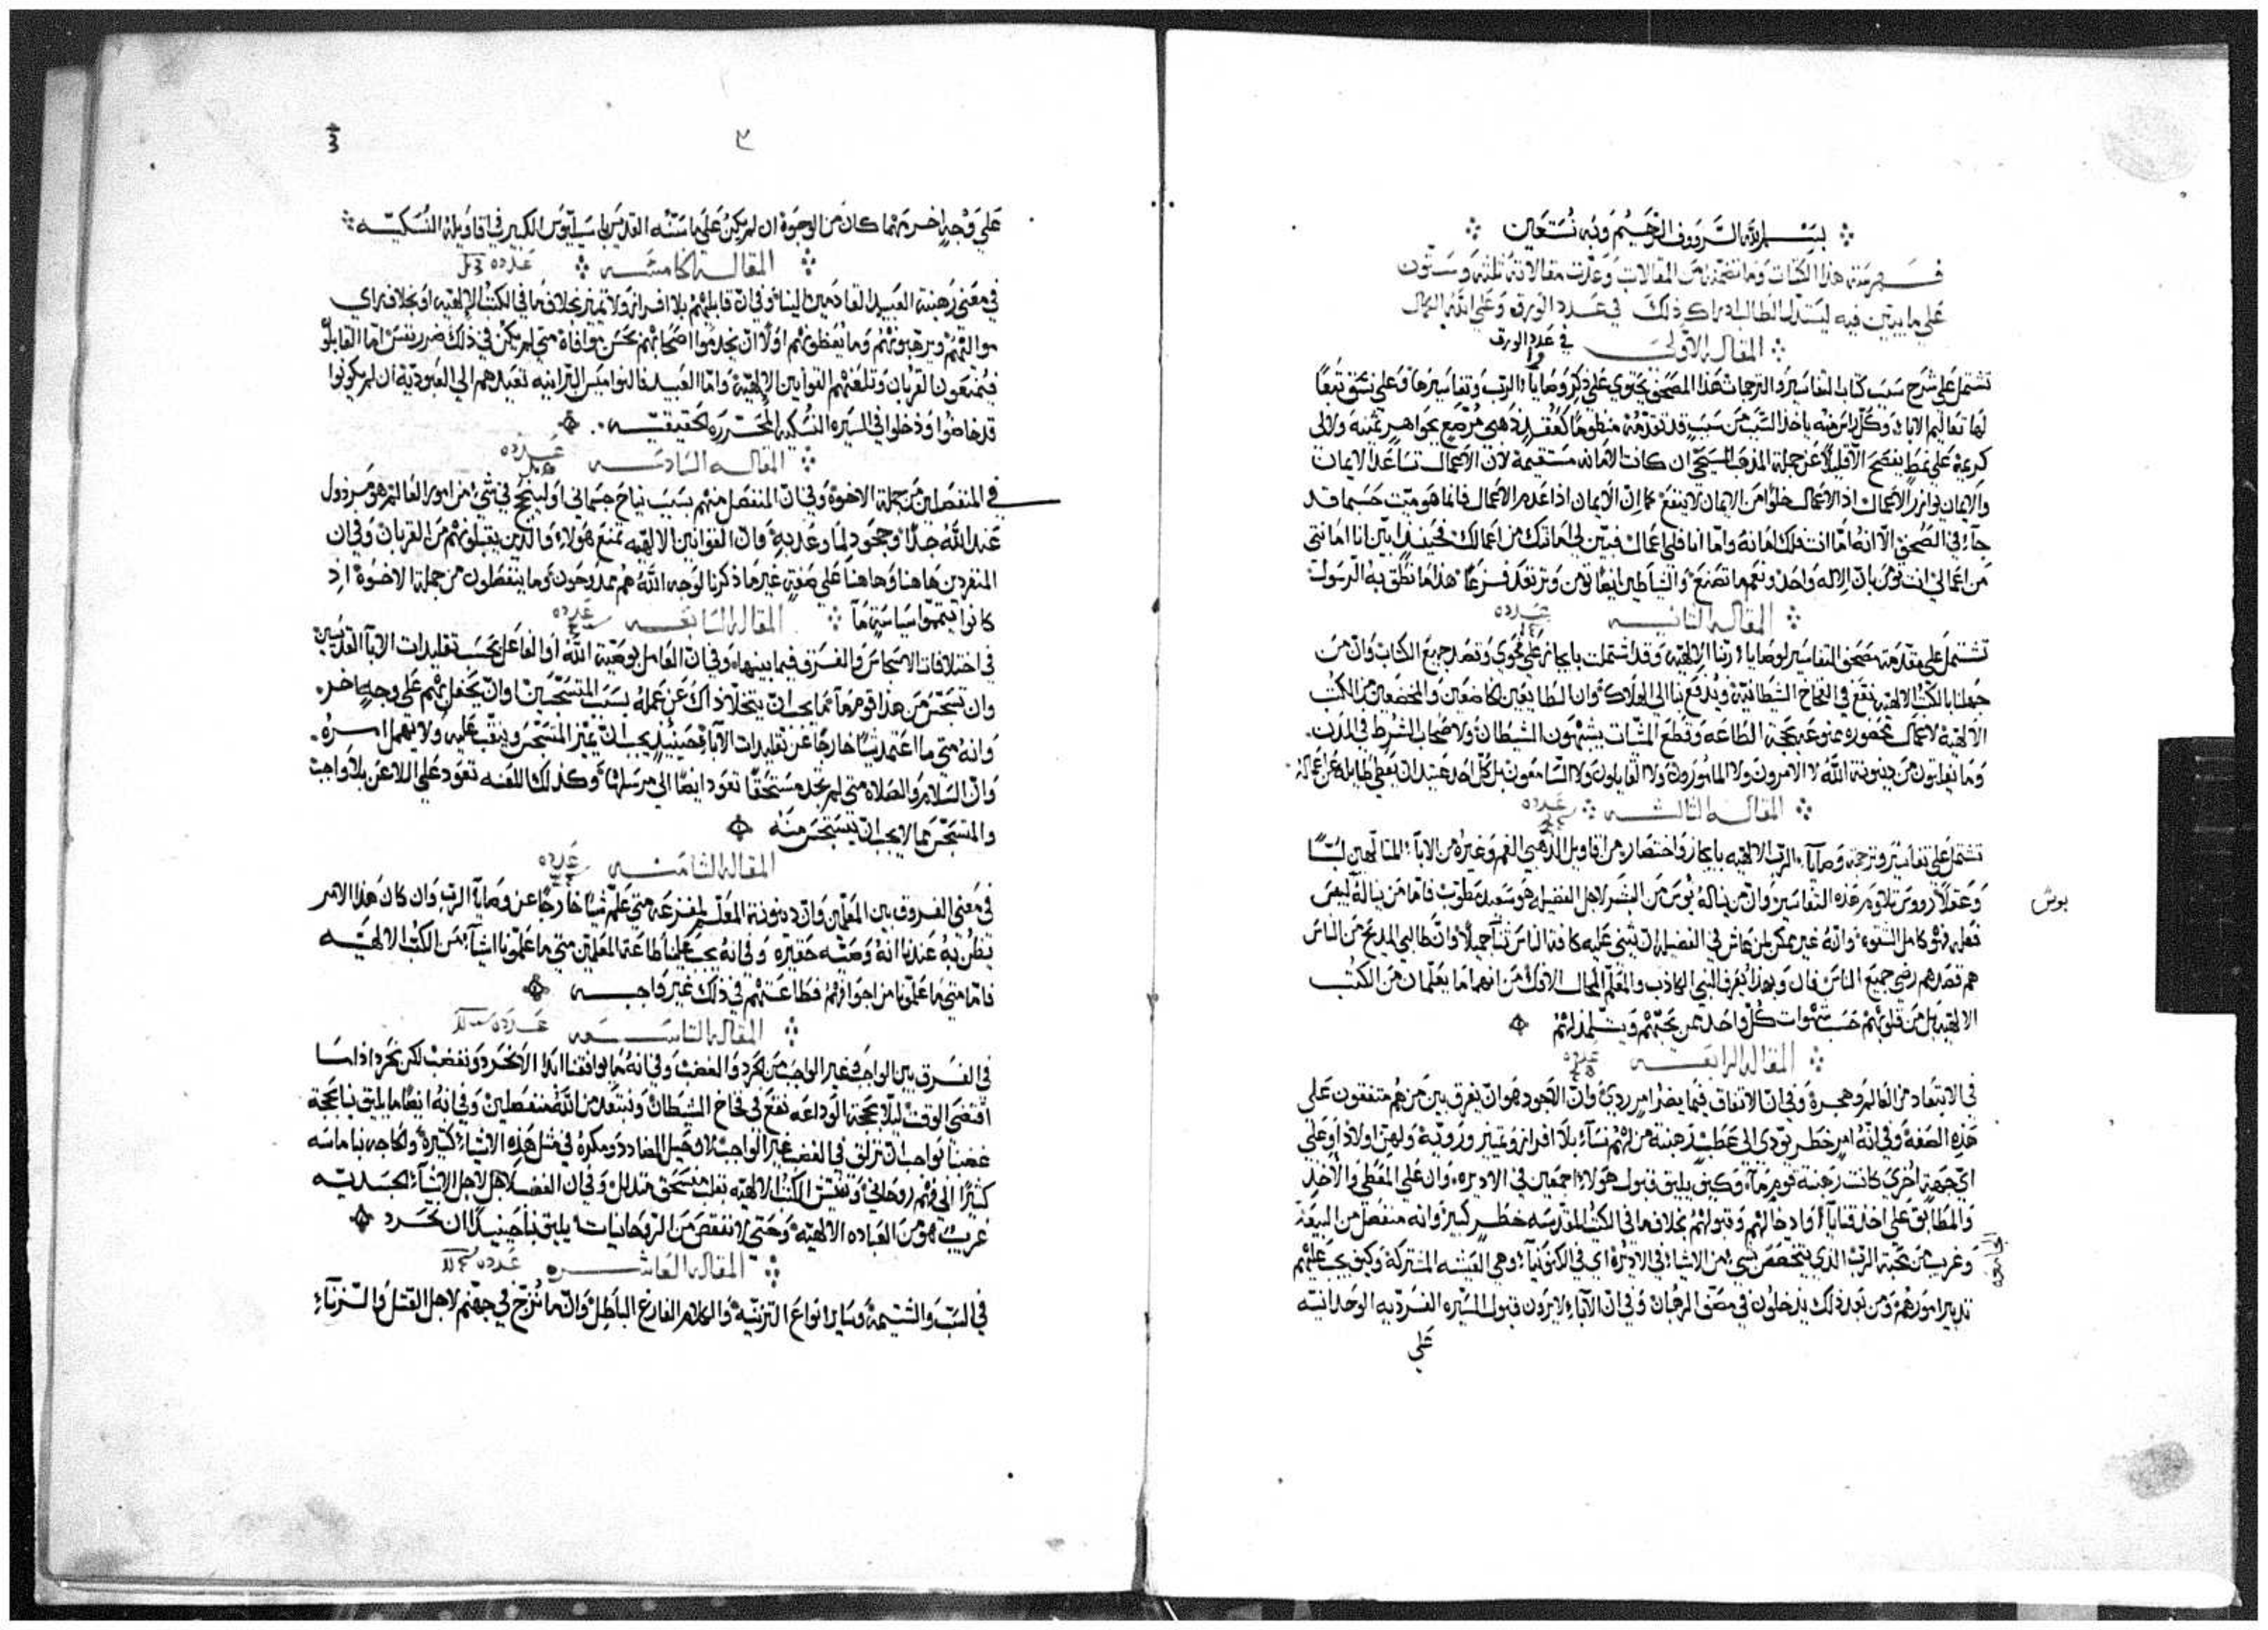 بسم الله الرووف الرحيم وبه نستعين
فهرسة هذا الكتاب وما تضمنه من المقالات وعدت مقالاته ثلثه وستون
على ما يبين فيه ليستدل الطالب ادراك ذلك في عدد الورق وعلى الله الكمال
المقاله الاولى في عدد الورق
تشتمل على شرح سبب كتاب التفاسير والترجمات هذا المصحف يحتوي على ذكر وصايا الرب وتفاسيرها وعلى نسق تبعًا
لها تعاليم الابا وكل راس منه ياخذ السبب من سبب قد تقدمه منظومًا كعقد ذهبي مرصع بجواهر ثمينه ولالى
كريمة على نمط يفصح الاقليلا عن جملة المذهب المسيحي ان كانت الامانه مستقيمة لان الاعمال تساعد الايمان
والايمان يوازر الاعمال اذ الاعمال خلوًا من الايمان لا ينفع كما ان الايمان اذا عدم الاعمال فانما هو ميت حسبما قد
جاء في الصحف الا انه اما انت فلك امانه واما انا فلي اعمال فبين لي امانتك من اعمالك فحينيذ ابين انا امانتي
من اعمالي انت تومن بان الاله واحد ونعم ما تصنع والشياطين ايضًا تومن وترتعد فزعًا هذا ما نطق به الرسول
المقاله الثانيه عدده
تشتمل على مقدمة مصحف التفاسير لوصايا ربنا الالهيه وقد اشتملت بايجاز على فحوي وقصد جميع الكتاب وان من
جهلنا بالكتب الالهيه نقع في الفخاخ الشيطانية ويدفع بنا الى الهلاك وان الطايعين الخاضعين والمخضعين من الكتب
الالهية لاعمال محضوره ممنوعه بحجة الطاعه وقطع المشيات يشبهون الشيطان ولاصحاب الشرط في المدن
وما يفلتون من دينونة الله لا الامرون ولا المامورون ولا القايلون ولا السامعون بل كل احد عتيد ان يعطي
المقاله الثالثه عدده
تشتمل على تفاسير وترجمة وصايا الرب الالهيه بايجاز واختصار من اقاويل الذهبي الفم وغيره من الابا المتالهين لبًا
هذه التفاسير وان من يناله بوس من البشر لاجل الفضيله هو سعيد مطوب فاما من يناله ليس
بوش
فعليه فهو كامل الشقوه وانه غير ممكن لمن عاش في الفضيله ان يثني عليه كافة الناس ثناً جميلاً وان طالبي المديح من الناس
هم قصدهم رضي جميع الناس قال وبهذا يعرف النبي الكاذب والمعلم المحال الافاك من انهما ما يعلمان من الكتب
الالهيه بل من قلوبهم حسب شهوات كل واحد ممن يحبهم ويتلمذ لهم
المقاله الرابعه عدده
في الابتعاد من العالم وهجره وفي ان الاتفاق فيما يضر امر ردي وان الاجود هو ان يفرق بين من هم متفقون على
هذه الصفة وفي انه امر خطر يودي الى عطب رهبنة من لهم نساء بلا افراز وتمييز وروية ولهن اولاد او على
اي جهة اخرى كانت رهبنة قوم ما وكيف يليق قبول هولاء اجمعين في الاديره وان على المعطي والاخذ
والمطابق على اخذ قنايا او ادخالهم وقبولهم بخلاف ما في الكتب المقدسه خطر كبير وانه منفصل من البيعة
وغريب من محبة الرب الذي يتخصص بشي من الاشياء في الاديره اي في الكنوبيا وهي العيشه المشتركة وكيف يجب عليهم
تدبير امورهم ومن بعد ذلك يدخلون في مصف الرهبان وفي ان الاباء لا يرون قبول السيره الفرديه الوحدانيه
على
٢
على وجه اخر مهما كان من الوجوه ان لم يكن على ما سنه القديس باسيليوس الكبير في اقاويله النسكيه
المقالة الخامسه عدده
في معنى رهبنة العبيد القادمين الينا وفي ان قابليهم بلا افراز ولا تمييز بخلاف ما في الكتب الالهيه او بخلاف راي
مواليهم ويرهبونهم وما يعظونهم اولاً ان يخدموا اصحابهم بحسن موافاة متى لم يكن في ذلك ضرر نفس اما القابلو
فيمنعون القربان وتلعنهم القوانين الالهية واما العبيد فالنواميس البرانيه تعبدهم الى العبودية ان لم يكونوا
قد خاضوا ودخلوا في السيره النسكيه المحرره الحقيقيه
المقاله السادسه عدده
في المنفصلين من جملة الاخوة وفي ان المنفصل منهم بسبب نياح جسماني او لينجح في شيء من امور العالم هو مرذول
عند الله جدًا وجحود لما وعد به وان القوانين الالهيه تمنع هولاء والذين يقبلونهم من القربان وفي ان
المنفردين هاهنا وهاهنا على صفة غير ما ذكرنا لوجه الله هم ممدوحون وما ينفصلون من جملة الاخوة اذ
كانوا يتمموا سياسة ما المقاله السابعه عدده
في اختلافات الاسجاس والفرق فيما بينها وفي ان العامل بوصية الله او الفاعل بحسب تقليدات الابا القديسين
وان تسجس من هذا قوم ما فما يجب ان يتخلا ذاك عن عمله بسبب المتسجسين وان يحفل بهم على وجه اخر
وانه متى ما اعتمد شيا خارجًا عن تقليدات الاباء فحينيذ يجب ان نميز المتسجس وينقب عليه ولا يهمل امره
وان السلام والصلاه متى لم يجد مستحقًا تعود ايضًا الى مرسلها وكذلك اللعنه تعود على اللاعن بلا واجب
والمتسجس مما لا يجب ان يتسجس منه
المقاله الثامنه عدده
في معنى الفروق بين المعلمين وان دينونة المعلم لمفزعه متى علم شيًا خارجًا عن وصايا الرب وان كان هذا الامر
يظن به عندنا انه وصيه حقيره وفي انه يجب علينا طاعة المعلمين متى ما علمونا اشياء من الكتب الالهيه
فاما متى ما علمونا من اجوافهم فطاعتهم في ذلك غير واجبه
المقاله التاسعه عدده
في الفرق بين الواجب وغير الواجب من الحرد والغضب وفي انه ما يوافقنا ابدًا الا نحرد ونغضب لكن نحرد اذا ما
اقتضى الوقت ليلا بحجة الوداعه نقع في فخاخ الشيطان ونبتعد من الله منفصلين وفي انه ايضًا ما يليق بنا بحجة
غضبنا بواجب ان نزلق في الغضب غير الواجب لان حيل المضادد ومكره في مثل هذه الاشياء كثيرة والحاجه بنا ماسه
كثيرًا الى فهم روحاني وتفتيش الكتب الالهيه بقلب منسحق متذلل وفي ان الغضب لاجل الاشياء الجسديه
غريب هو من العباده الالهيه وحتى لا ننقص من الروحانيات يليق بنا حينيذ ان نحرد
المقاله العاشره عدده
في السب والشتيمه وساير انواع التزنية والكلام الفارغ الباطل وان ما نزج في جهنم لاجل القتل والزناء